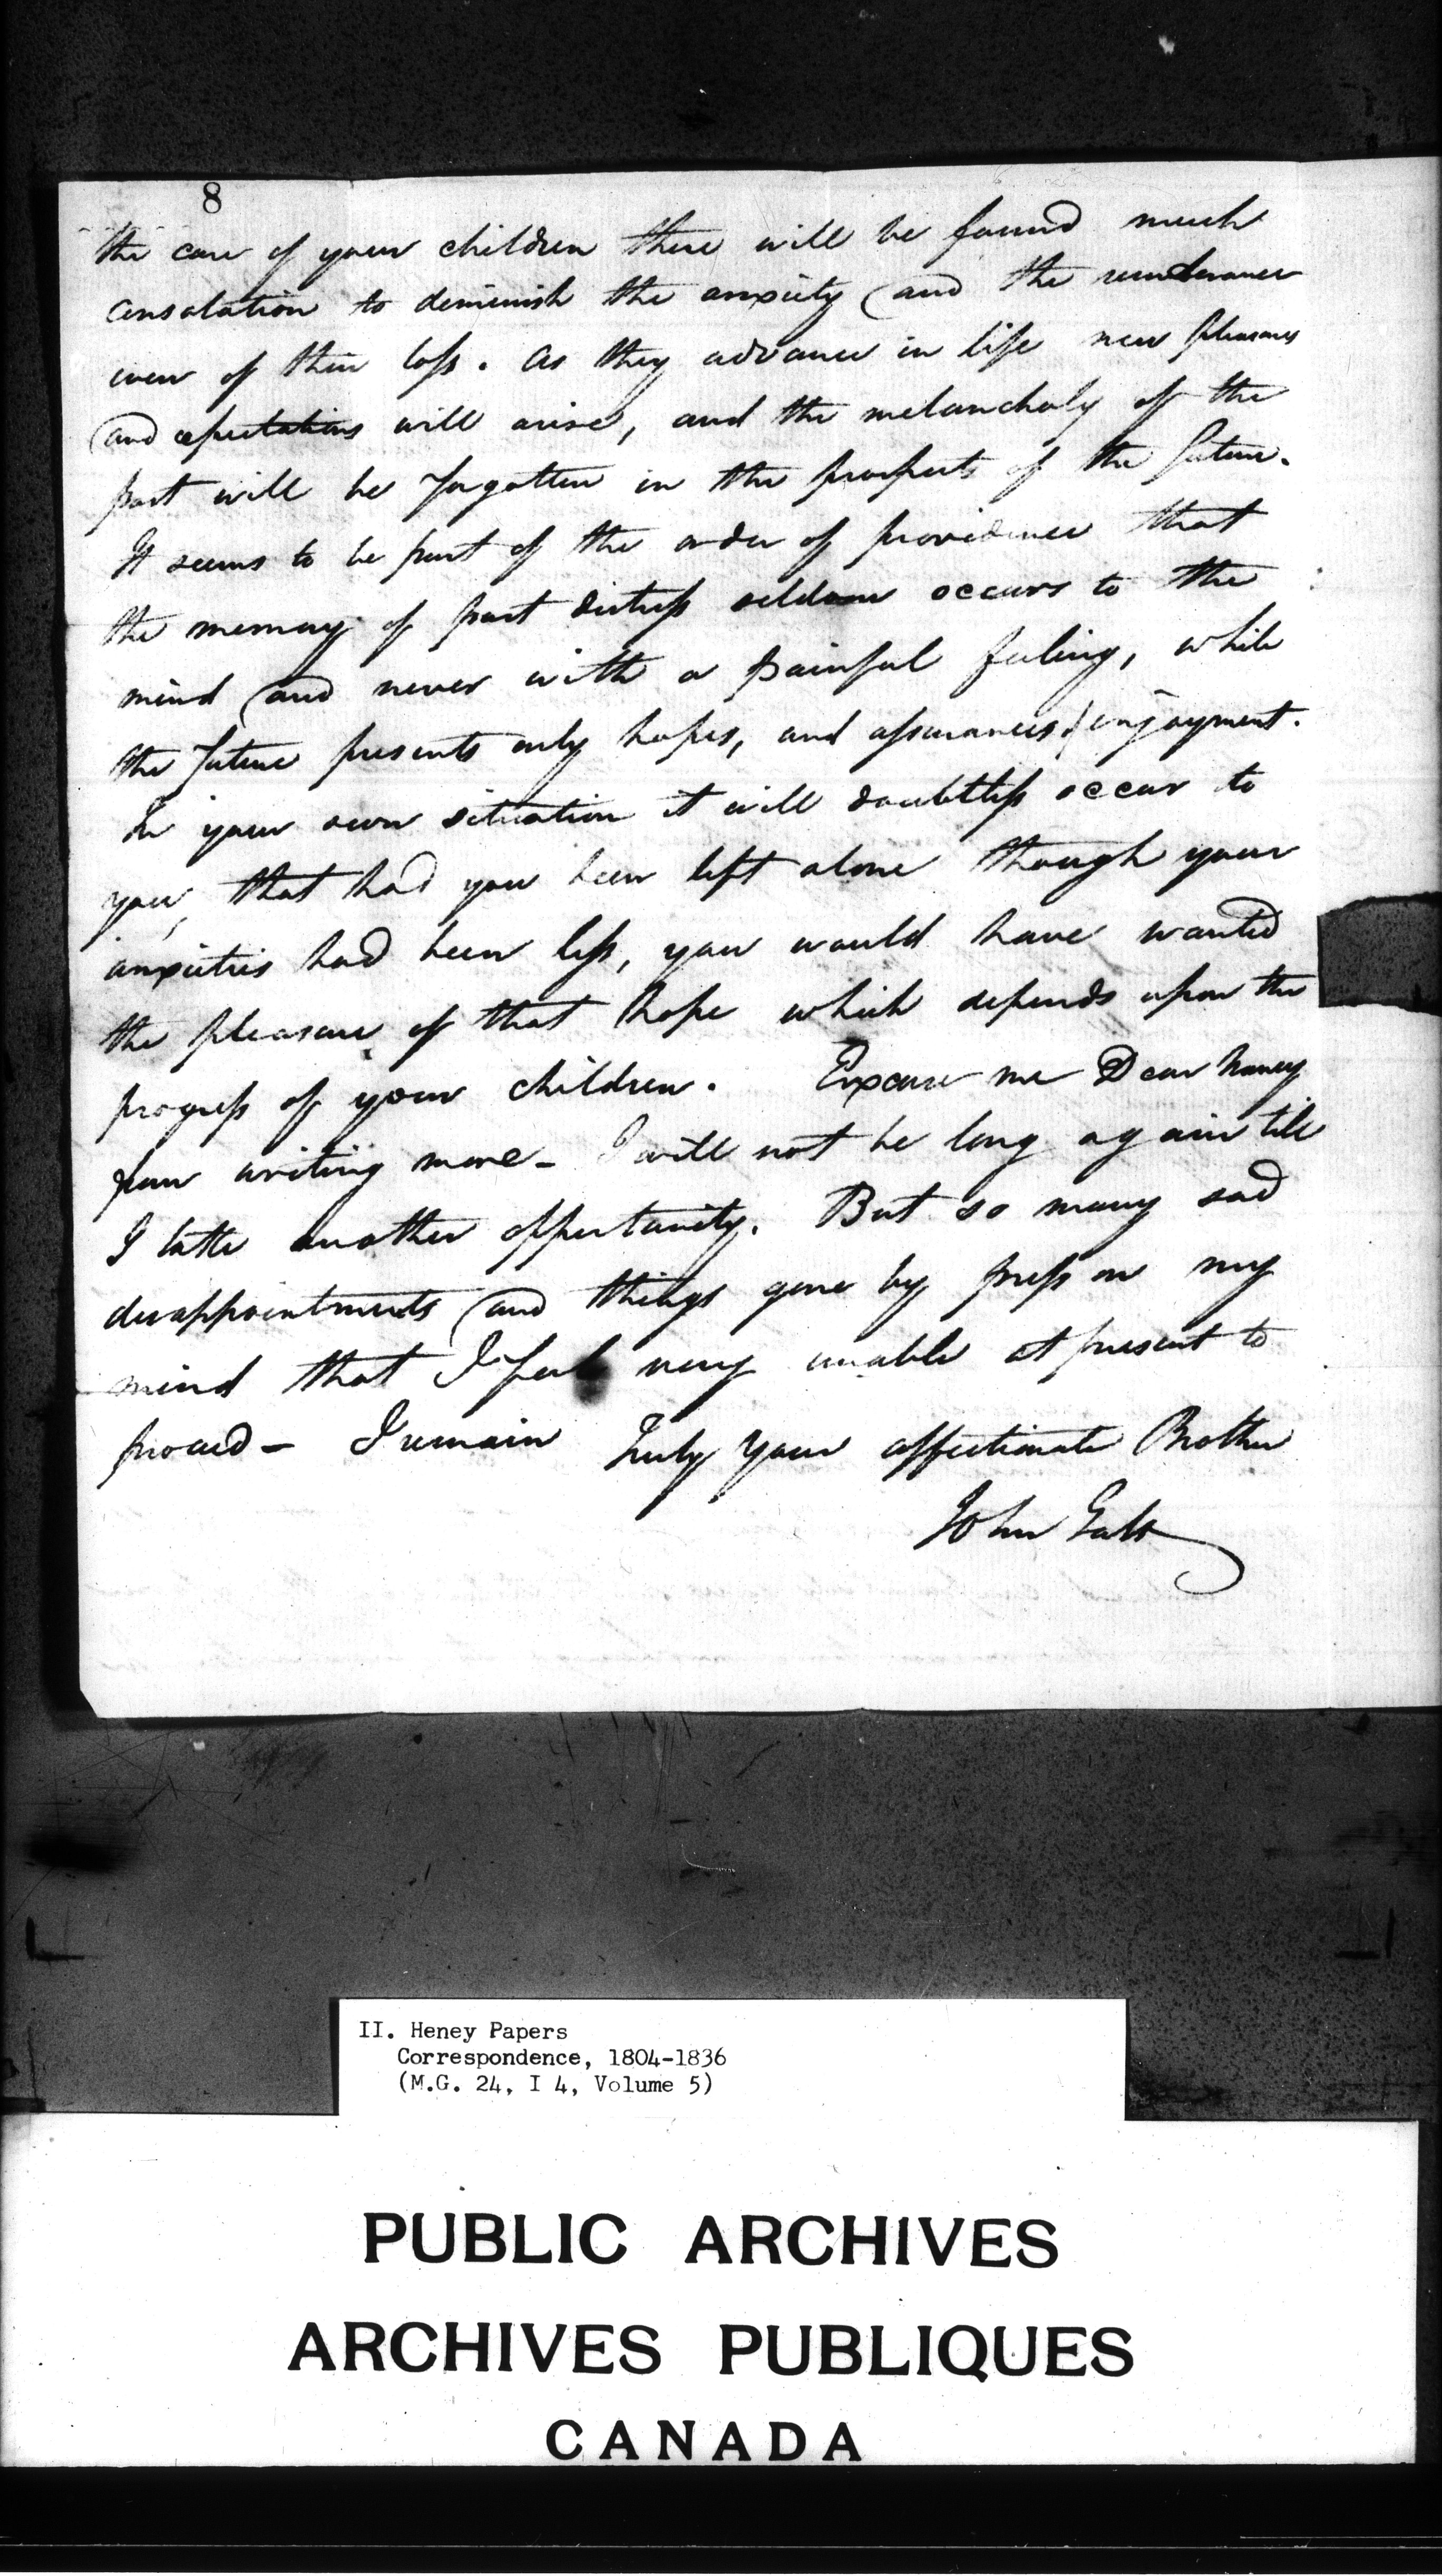 8
the care of your children there will be found much
consolation to deminish the anxiety and the remembrance
even of their loss. As they advance in life new pleasures
and expectations will arise, and the melancholy of the
past will be forgotten in the prospects of the future.
It seems to be part of the order of providence that
the memory of past distress seldom occurs to the
mind and never with a painful feeling, while
the future presents only hopes, and assurances of enjoyment.
In your own situation it will doubtless occur to
you, that had you been left alone though your
anxieties had been less, you would have wanted
the pleasure of that hope which depends upon the
progress of your children. Excuse me Dear Nancy
from writing more - I will not be long again till
I take another oppertunity. But so many sad
disappointments and things gone by press on my
mind that I feel very unable at present to
proceed - I remain Truly Your affectionate Brother
John Galt
II. Heney Papers
Correspondence, 1804-1836
(M.G. 24, I 4, Volume 5)
PUBLIC ARCHIVES
ARCHIVES PUBLIQUES
CANADA